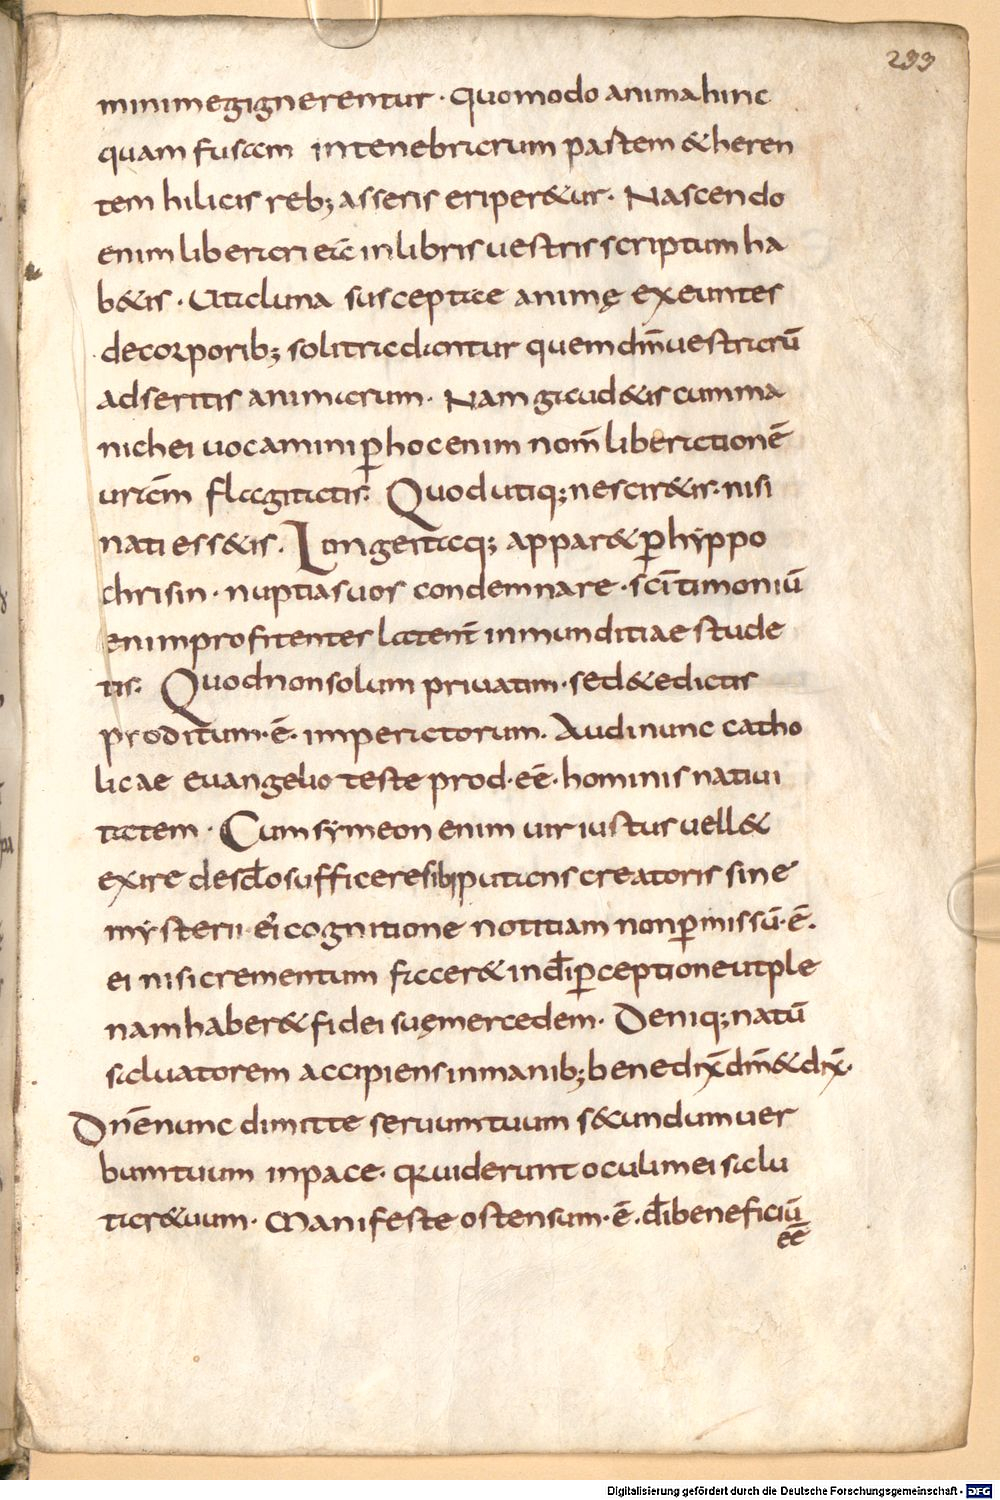 233
minimegignerentur · quomodo animahinc
quam fuscam intenebrarum partem & heren
tem hilicis reb; asseris eriper&ur · Nascendo
enim liberari ea inlibris uestris scriptum ha
b&is · Utiluna susceptae animę exeuntes
decorporib; soli tradantur quem dñm uestrarū
adseritis animarum · Nam gaud&is cumma
nichei uocamini ꝑ hoc enim nom̄ liberationē
uram̄ flagitatis · Quodutiq; nescir&is · nisi
nati ess&is . Longe itaq; appar& ꝑ hyppo
chrisin · nuptias uos condemnare · sc̄i timoniū
enim profitentes laten̄t inmunditiae stude
tis · Quodnonsolum priuatim · sed & edictis
proditum · ē · imperatorum . Audi nunc catho
licae euangelio teste prod · eē · hominis natiui
tatem · Cum symeon enim uir iustus uell&
exire de sclo sufficere sibi putans creatoris sine
mysterii ei cognitione notitiam non ꝑmissū · ē .
ei nisi crementum facer& in di ꝑceptione ut ple
nam haber& fidei suę mercedem · Deniq; natū
saluatorem accipiens inmanib; benedix̄ dm̄ & dix̄ ·
Dnē nunc dimitte seruum tuum s&undum uer
bum tuum inpace · q uiderunt oculi mei salu
tar&uum · Manifeste ostensum · ē . di beneficiū
eē
Digitalisierung gefördert durch die Deutsche Forschungsgemeinschaft - DFG